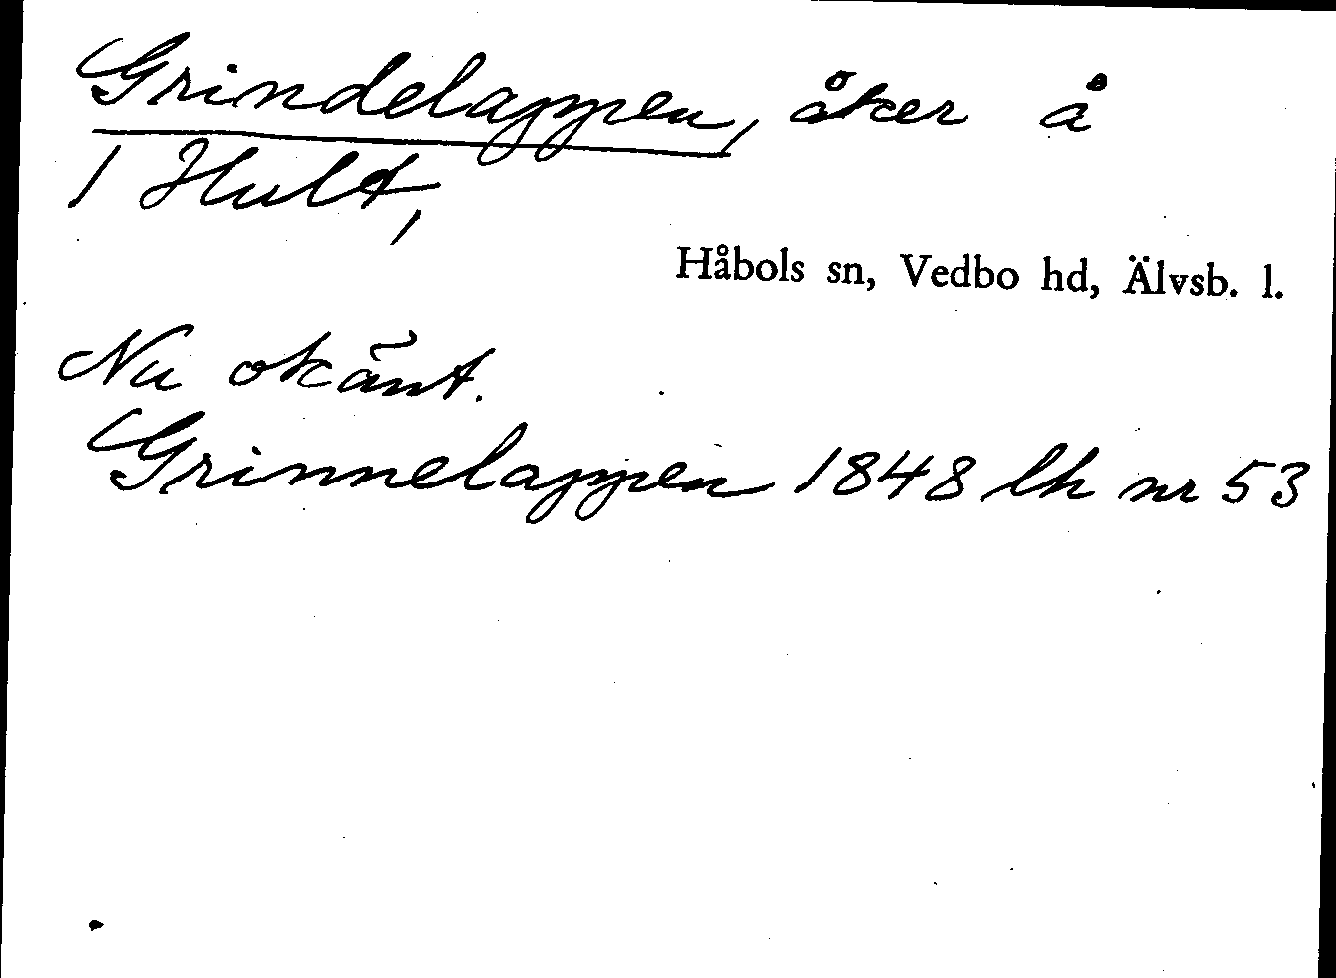 Grindelappen, åker å
1 Hult,
Håbols sn, Vedbo hd, Älvsb. l.
Nu okänt.
Grinnelappen 1848 lh nr 53